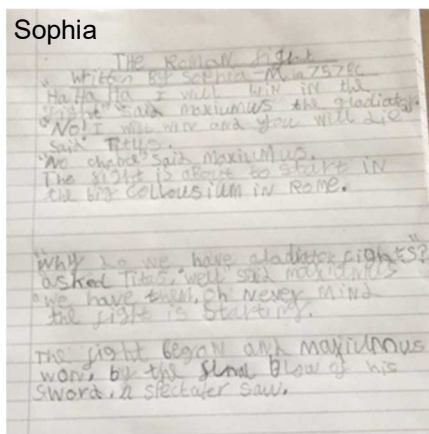 Sophia
The Roman fight
Written By Sophia-M in 757BC
Ha Ha Ha I will win in the
"fight" said maxiumus the gladiator.
"No! I will win and you will die
said Titus.
"No chance" said maxiumus.
The fight is about to start in
the big collousium in Rome.
"Why do we have gladiator fights"?
asked Titus, "well" said maxiumus
"we have them, oh never mind
the fight is starting.
The fight began and maxiumus
won, by the final Blow of his
sword, a spectater saw.